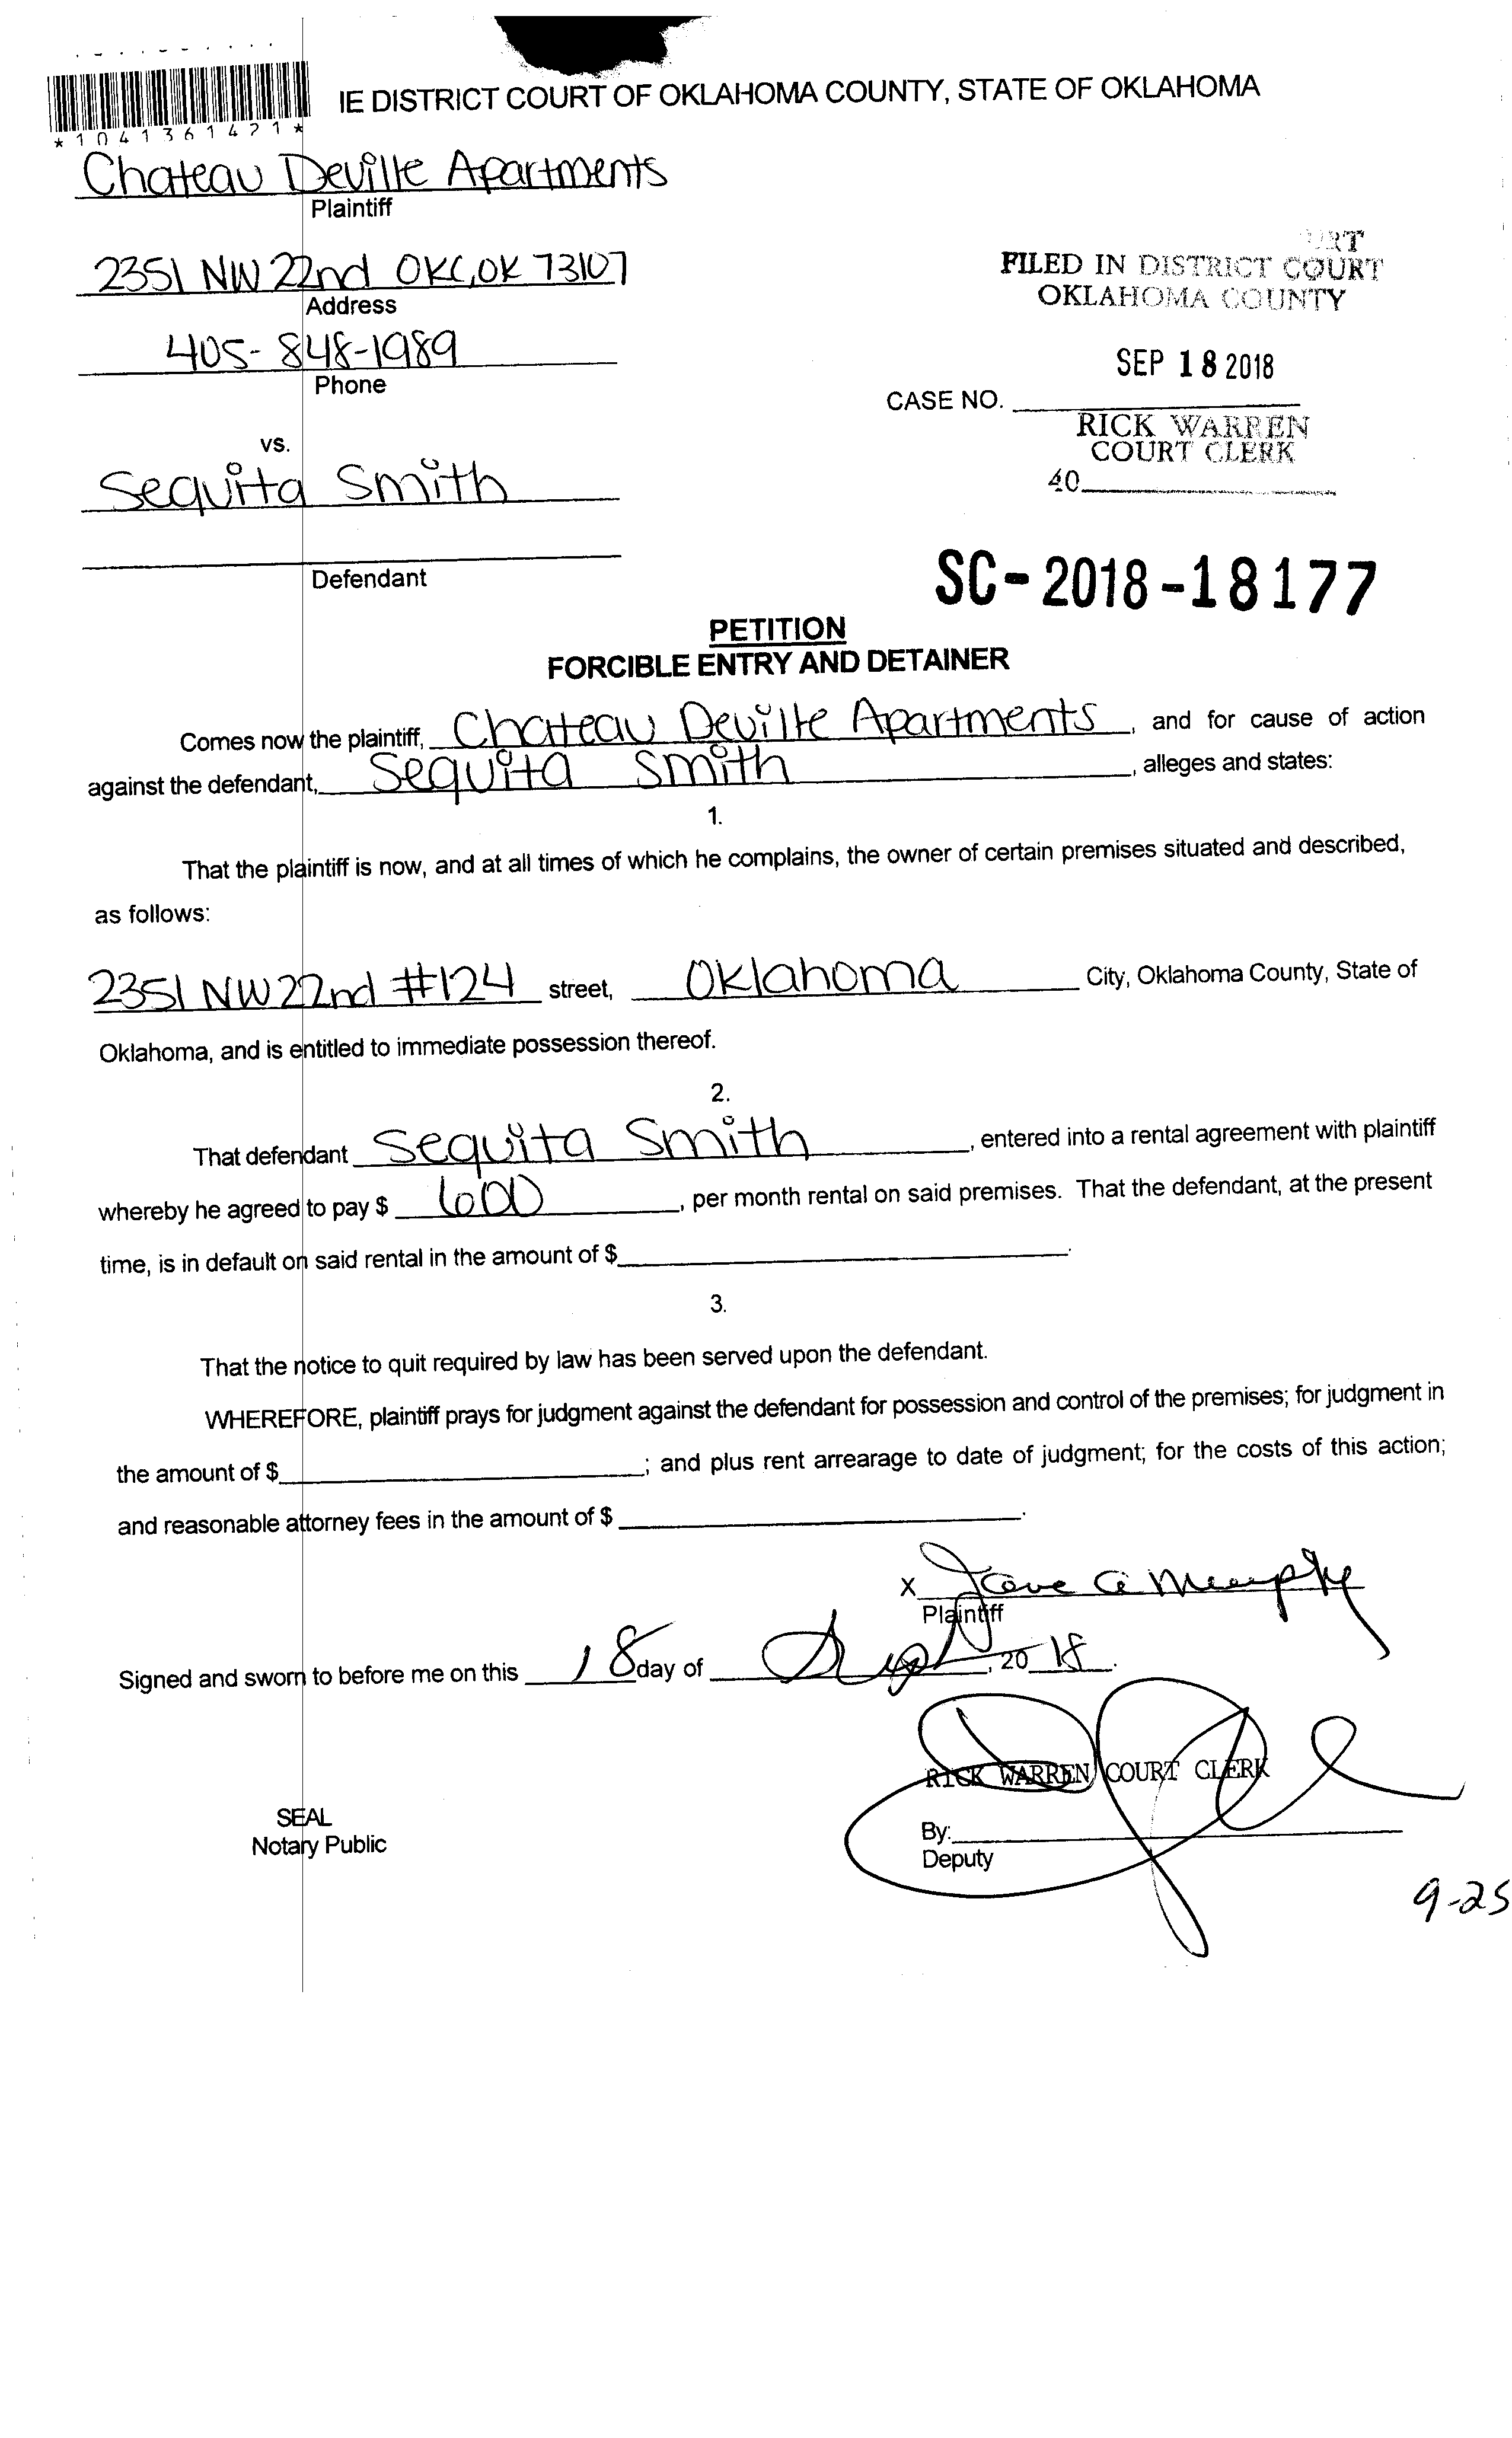 IE DISTRICT COURT OF OKLAHOMA COUNTY, STATE OF OKLAHOMA
*1041361421*
Chateau Deville Apartments
Plaintiff
2351 NW 22nd OKC, OK 73107
Address
405-848-1989
Phone
URT
FILED IN DISTRICT COURT
OKLAHOMA COUNTY
SEP 18 2018
CASE NO.
RICK WARREN
COURT CLERK
40
vs.
Sequita Smith
Defendant
SC-2018-18177
PETITION
FORCIBLE ENTRY AND DETAINER
Comes now the plaintiff, Chateau Deville Apartments, and for cause of action
against the defendant, Sequita Smith, alleges and states:
1.
That the plaintiff is now, and at all times of which he complains, the owner of certain premises situated and described,
as follows:
2351 NW 22nd #124 street, Oklahoma City, Oklahoma County, State of
Oklahoma, and is entitled to immediate possession thereof.
2.
That defendant Sequita Smith, entered into a rental agreement with plaintiff
whereby he agreed to pay $ 600, per month rental on said premises. That the defendant, at the present
time, is in default on said rental in the amount of $ .
3.
That the notice to quit required by law has been served upon the defendant.
WHEREFORE, plaintiff prays for judgment against the defendant for possession and control of the premises; for judgment in
the amount of $ ; and plus rent arrearage to date of judgment; for the costs of this action;
and reasonable attorney fees in the amount of $ .
X Murphy
Plaintiff
Signed and sworn to before me on this 18 day of Sept, 20 18.
RICK WARREN COURT CLERK
SEAL
Notary Public
By:
Deputy
9-25